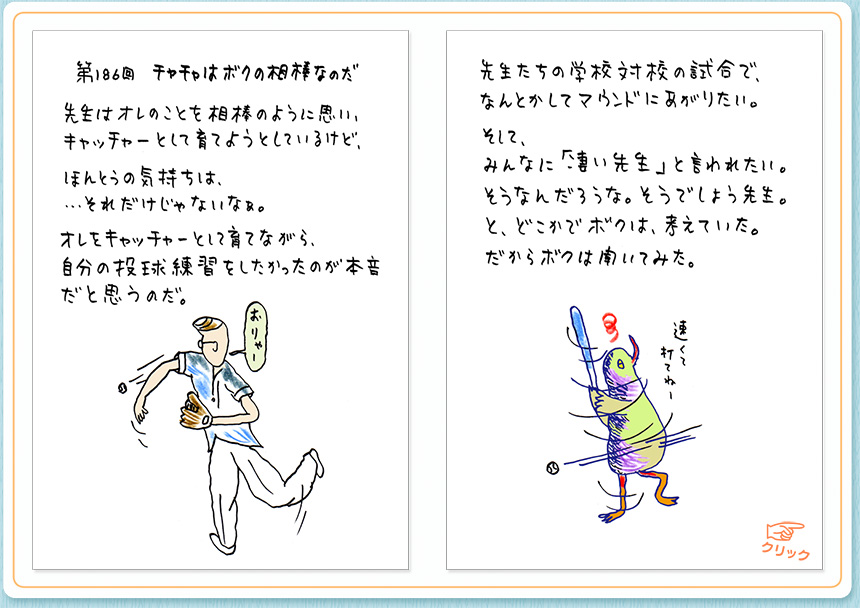 第186回 チャチャはボクの相棒なのだ
先生はオレのことを相棒のように思い、
キャッチャーとして育てようとしているけど、
ほんとうの気持ちは、
…それだけじゃないなぁ。
オレをキャッチャーとして育てながら、
自分の投球練習をしたかったのが本音
だと思うのだ。
おりゃー
先生たちの学校対校の試合で、
なんとかしてマウンドにあがりたい。
そして、
みんなに「凄い先生」と言われたい。
そうなんだろうな。そうでしょう先生。
と、どこかでボクは、考えていた。
だからボクは聞いてみた。
速くて
打てねー
クリック